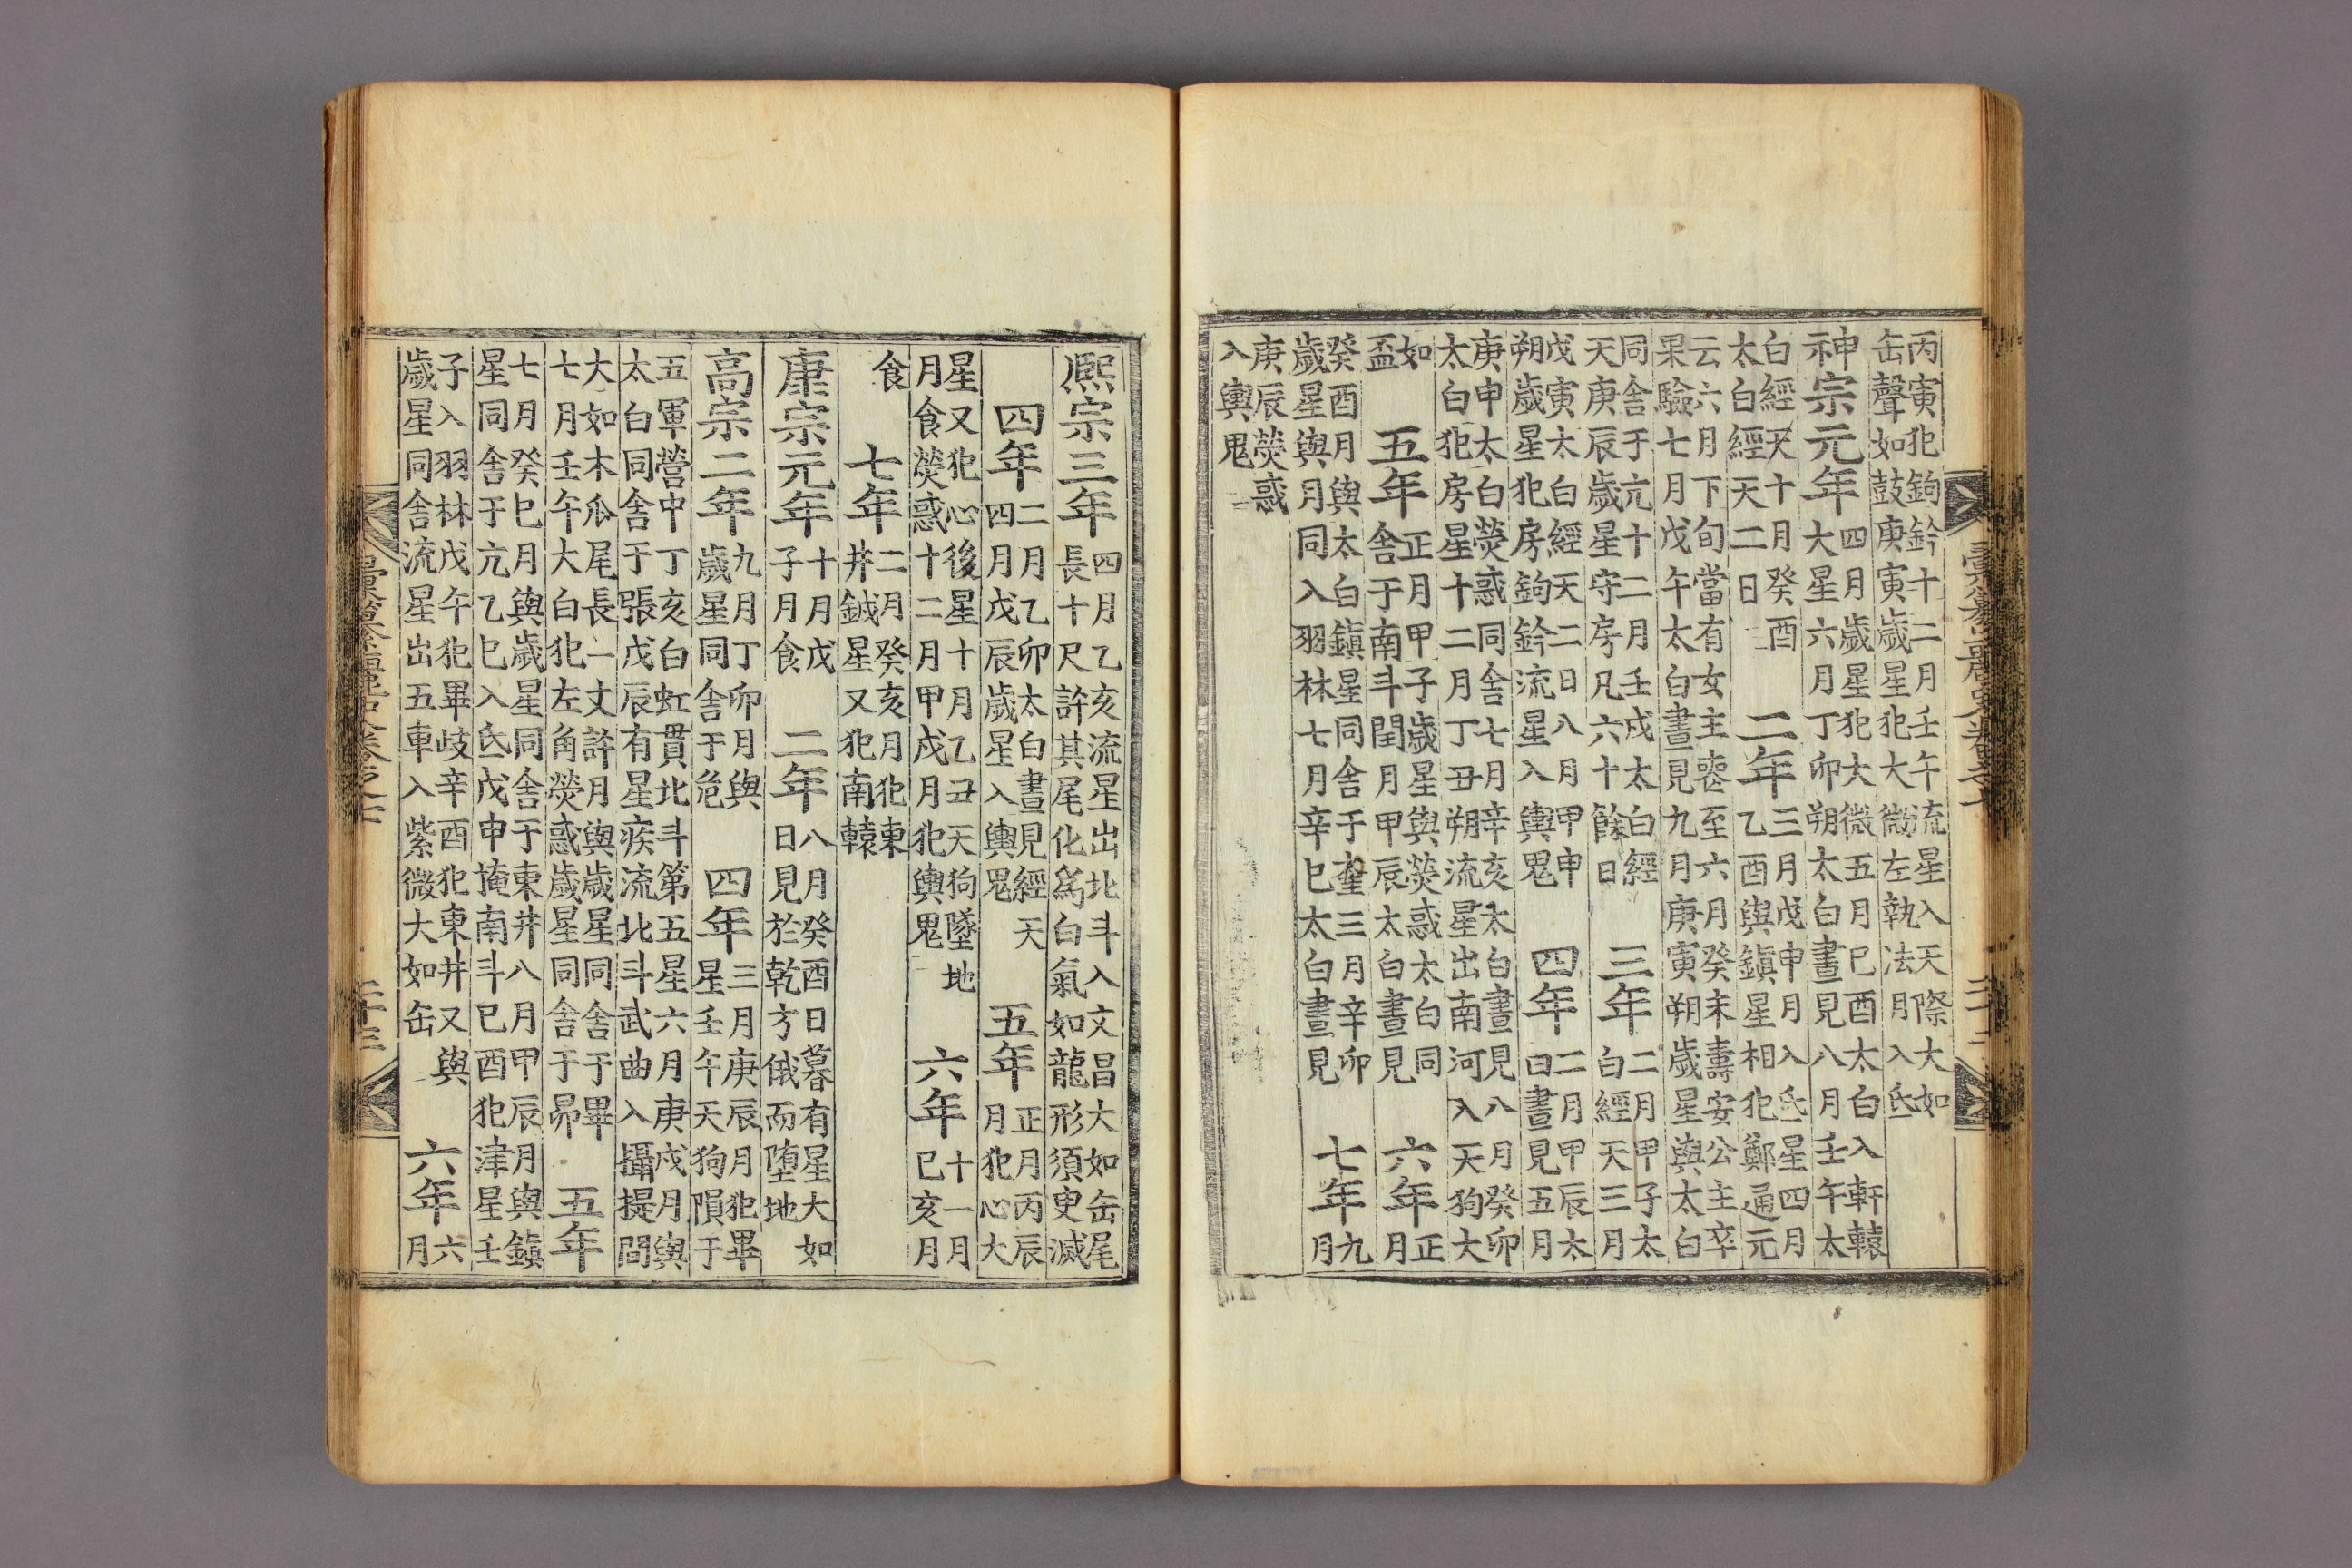 丙寅犯鉤鈐十二月壬午流星入天際大如
缶聲如鼓庚寅歲星犯大微左執法月入氐
神宗元年
四月歲星犯大微五月己酉太白入軒轅
大星六月丁卯朔太白晝見八月壬午太
白經天十月癸酉
太白經天二日
二年
三月戊申月入氐星四月
乙酉與鎭星相犯鄭通元
云六月下旬當有女主喪至六月癸未壽安公主卒
果驗七月戊午太白晝見九月庚寅朔歲星與太白
同舍于亢十二月壬戌太白經
天庚辰歲星守房凡六十餘日
三年
二月甲子太
白經天三月
戊寅太白經天二日八月甲申
朔歲星犯房鉤鈐流星入輿鬼
四年
二月甲辰太
白晝見五月
庚申太白熒惑同舍七月辛亥太白晝見八月癸卯
太白犯房星十二月丁丑朔流星出南河入天狗大
如
盃
五年
正月甲子歲星與熒惑太白同
舍于南斗閏月甲辰太白晝見
六年
正
月
癸酉月與太白鎭星同舍于奎三月辛卯
歲星與月同入羽林七月辛巳太白晝見
七年
九
月
庚辰熒惑
入輿鬼
熙宗三年
四月乙亥流星出北斗入文昌大如缶尾
長十尺許其尾化爲白氣如龍形須臾滅
四年
二月乙卯太白晝見經天
四月戊辰歲星入輿鬼
五年
正月丙辰
月犯心大
星又犯心後星十月乙丑天狗墜地
月食熒惑十二月甲戌月犯輿鬼
六年
十一月
己亥月
食
七年
二月癸亥月犯東
井鉞星又犯南轅
康宗元年
十月戊
子月食
二年
八月癸酉日暮有星大如
日見於乾方俄而墮地
高宗二年
九月丁卯月與
歲星同舍于危
四年
三月庚辰月犯畢
星壬午天狗隕于
五軍營中丁亥白虹貫北斗第五星六月庚戌月與
太白同舍于張戊辰有星疾流北斗武曲入攝提間
大如木瓜尾長一丈許月與歲星同舍于畢
七月壬午大白犯左角熒惑歲星同舍于昴
五年
七月癸巳月與歲星同舍于東井八月甲辰月與鎭
星同舍于亢乙巳入氐戊申掩南斗己酉犯津星壬
子入羽林戊午犯畢歧辛酉犯東井又與
歲星同舍流星出五車入紫微大如缶
六年
六
月